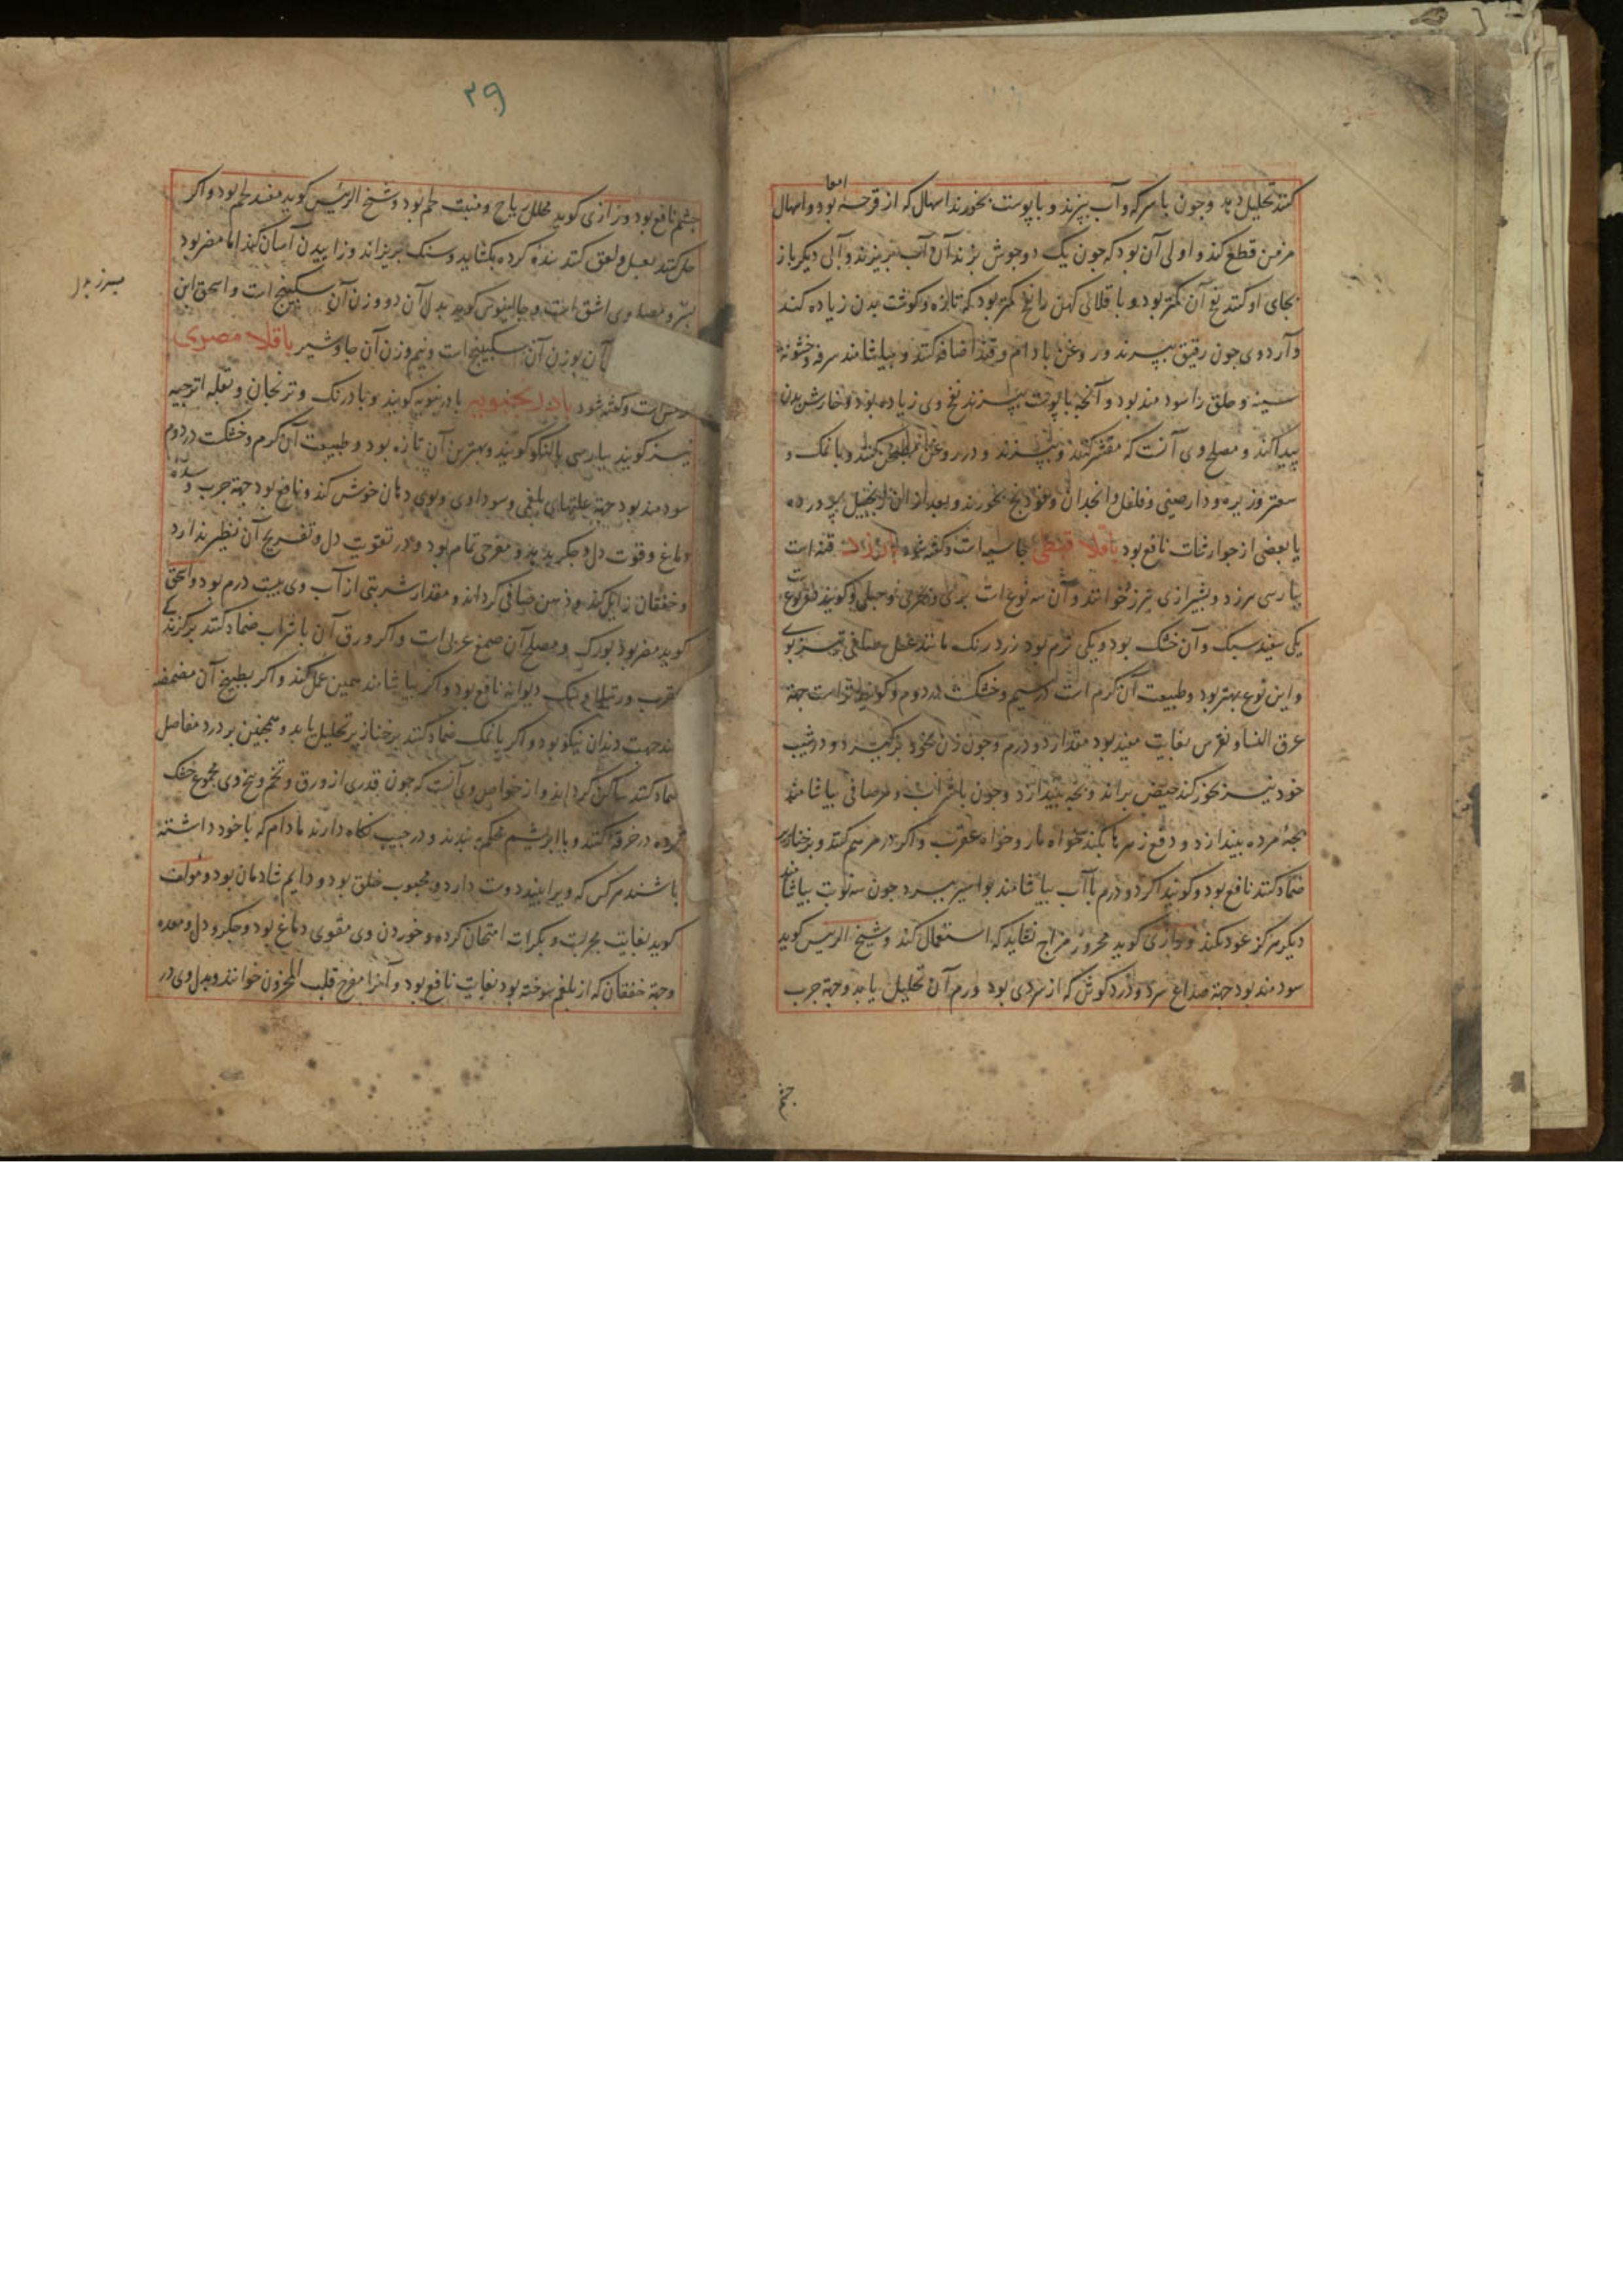 امعا
کنند تحلیل دهد وجون با سرکه و آب بپزند و با پوست بخورند اسهال که از قرحه بود و اسهال
مزمن قطع کند و اولی آن بود که جون یک دو جوش بزند آن آب بریزند و آبی دیکر باز
بجای او کنند نفخ آن کمتر بود و باقلای کهن را نفخ کمتر بود که تازه و کوشت بدن زیاده کند
و آرد وی جون رقیق بپزند و روغن بادام و قند اضافه کنند و بیاشامند سرفه و خشونة
سینه و حلق را سودمند بود و آنجه با پوست بپزند نفخ وی زیاده بود و خارش بدن
پیدا کند و مصلح وی آنست که مقشر کنند و بپزند و در روغن کنند و با نمک و
سعتر و زیره و دارصینی و فلفل و انجدان و فودنج بخورند و بعد از آن زنجبیل پرورده
یا بعضی از جوارشات نافع بود باقلا قبطی جامسه است و کفته شود بارزد قنه است
بپارسی بیرزد و بشیرازی بیرزد خوانند و آن سه نوع است بری و بحری و جبلی و کویند دو نوع
یکی سفید سبک و آن خشک بود و یکی نرم بود زرد رنک مانند عسل صافی تیزبوی
و این نوع بهتر بود و طبیعت آن کرم است در سیم و خشکست در دوم و کویند تر است جهة
عرق النسا و نقرس بغایت مفید بود مقدار دو درم و جون زن بخود برکیرد و در شیب
خود نیز بخور کند حیض براند و بچه بیندازد و جون با شراب و مر صافی بیاشامند
بچهٔ مرده بیندازد و دفع زهرها بکند خواه مار و خواه عقرب و اکر در مرهم کنند و بر خنازیر
ضماد کنند نافع بود و کویند اکر دو درم با آب بیاشامند بواسیر ببرد جون سه نوبت بیاشامند
دیکر هرکز عود نکند و رازی کوید محرور مزاج نشاید که استعمال کند و شیخ الرییس کوید
سودمند بود جهة صداع سرد و درد کوش که از سردی بود و ورم آن تحلیل یابد و جهة جرب
جشم
۳۹
جشم نافع بود و رازی کوید محلل ریاح و منبت لحم بود و شیخ الرییس کوید مفسد لحم بود و اکر
حل کنند بعسل و لعق کنند سده کرده بکشاید و سنک بریزاند و زاییدن آسان کند اما مضر بود
بسر و مصلح وی اشق است و جالینوس کوید بدل آن دو وزن آن سکبینج است و اسحق ابن
بوزن آن سکبینج است و نیم وزن آن جاوشیر باقلاء مصری
است و کفته شود بادرنجبویه بادرنبویه کویند و بادرنک و ترنجان و بقلة اترجیه
نیز کویند بپارسی بالنکو کویند و بهترین آن تازه بود و طبیعت آن کرم و خشکست در دوم
سودمند بود جهة علتهای بلغمی و سوداوی و بوی دهان خوش کند و نافع بود جهة جرب و سدهٔ
دماغ و قوت دل و جکر بدهد و مفرحی تمام بود و در تقویت دل و تفریح آن نظیر ندارد
و خفقان زایل کند و ذهن صافی کرداند و مقدار شربتی از آب وی بیست درم بود و اسحق
کوید مضر بود بورک و مصلح آن صمغ عربی است و اکر ورق آن با شراب ضماد کنند بر کزندکی
عقرب و رتیلا و سک دیوانه نافع بود و اکر بیاشامند همین عمل کند و اکر بطبیخ آن مضمضه
کنند جهت دندان نیکو بود و اکر با نمک ضماد کنند بر خنازیر تحلیل یابد و همجنین بر درد مفاصل
ضماد کنند ساکن کرداند و از خواص وی آنست که جون قدری از ورق و تخم و بیخ وی مجموع خشک
کرده در خرقه کنند و با ابریشم محکم ببندند و در جیب نکاه دارند مادام که با خود داشته
باشند هر کس که ویرا بیند دوست دارد و محبوب خلق بود و دایم شادمان بود و مولف
کوید بغایت مجربست و بکرات امتحان کرده و خوردن وی مقوی دماغ بود و جکر و دل و معده
وجهة خفقان که از بلغم سوخته بود بغایت نافع بود و آنرا مفرح قلب المحزون خوانند و بدل وی در